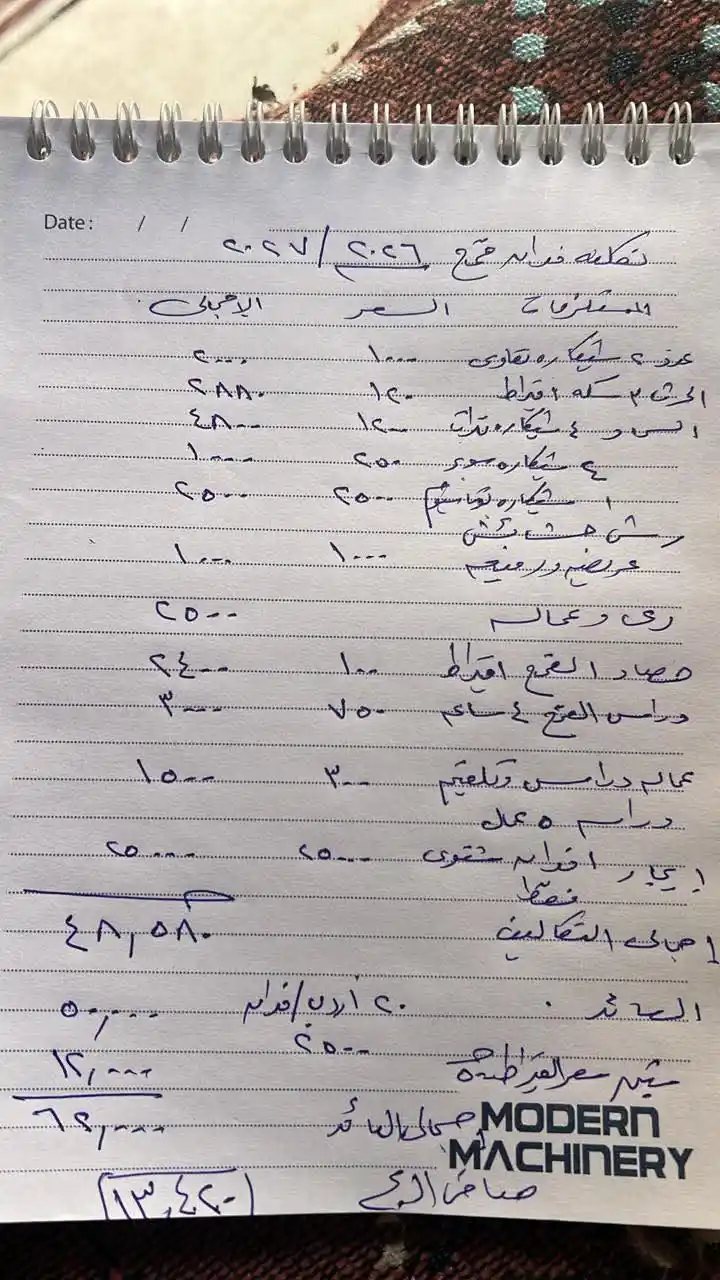 Date: / /
تكلفه فدان قمح ٢٠٢٦/٢٠٢٧
المستلزمات السعر الإجمالى
عدد ٢ شيكاره تقاوى ١٠٠٠ ٢٠٠٠
الحرث ٣ سكه اقيراط ١٢٠ ٢٨٨٠
٤ شيكاره ١٢٠٠ ٤٨٠٠
٤ شيكاره سوبر ٢٥٠ ١٠٠٠
١ شيكاره ٢٥٠٠ ٢٥٠٠
رش حشائش
عريضه ورفيعه ١٠٠٠ ١٠٠٠
رى وعماله ٢٥٠٠
حصاد القمح اقيراط ١٠٠ ٢٤٠٠
دراس القمح ٤ ساعه ٧٥٠ ٣٠٠٠
عماله دراس وتلقيم ٣٠٠ ١٥٠٠
دراسه ٥ عمال
إيجار افدان شتوى ٢٥٠٠٠ ٢٥٠٠٠
فقط
اجمالى التكاليف ٤٨,٥٨٠
العائد ٢٠ أردب/فدان ٥٠,٠٠٠
٢٥٠٠
تبن سعر القيراط ٥٠٠ ١٢,٠٠٠
اجمالى العائد ٦٢,٠٠٠
صافى الربح ١٣,٤٢٠
MODERN
MACHINERY